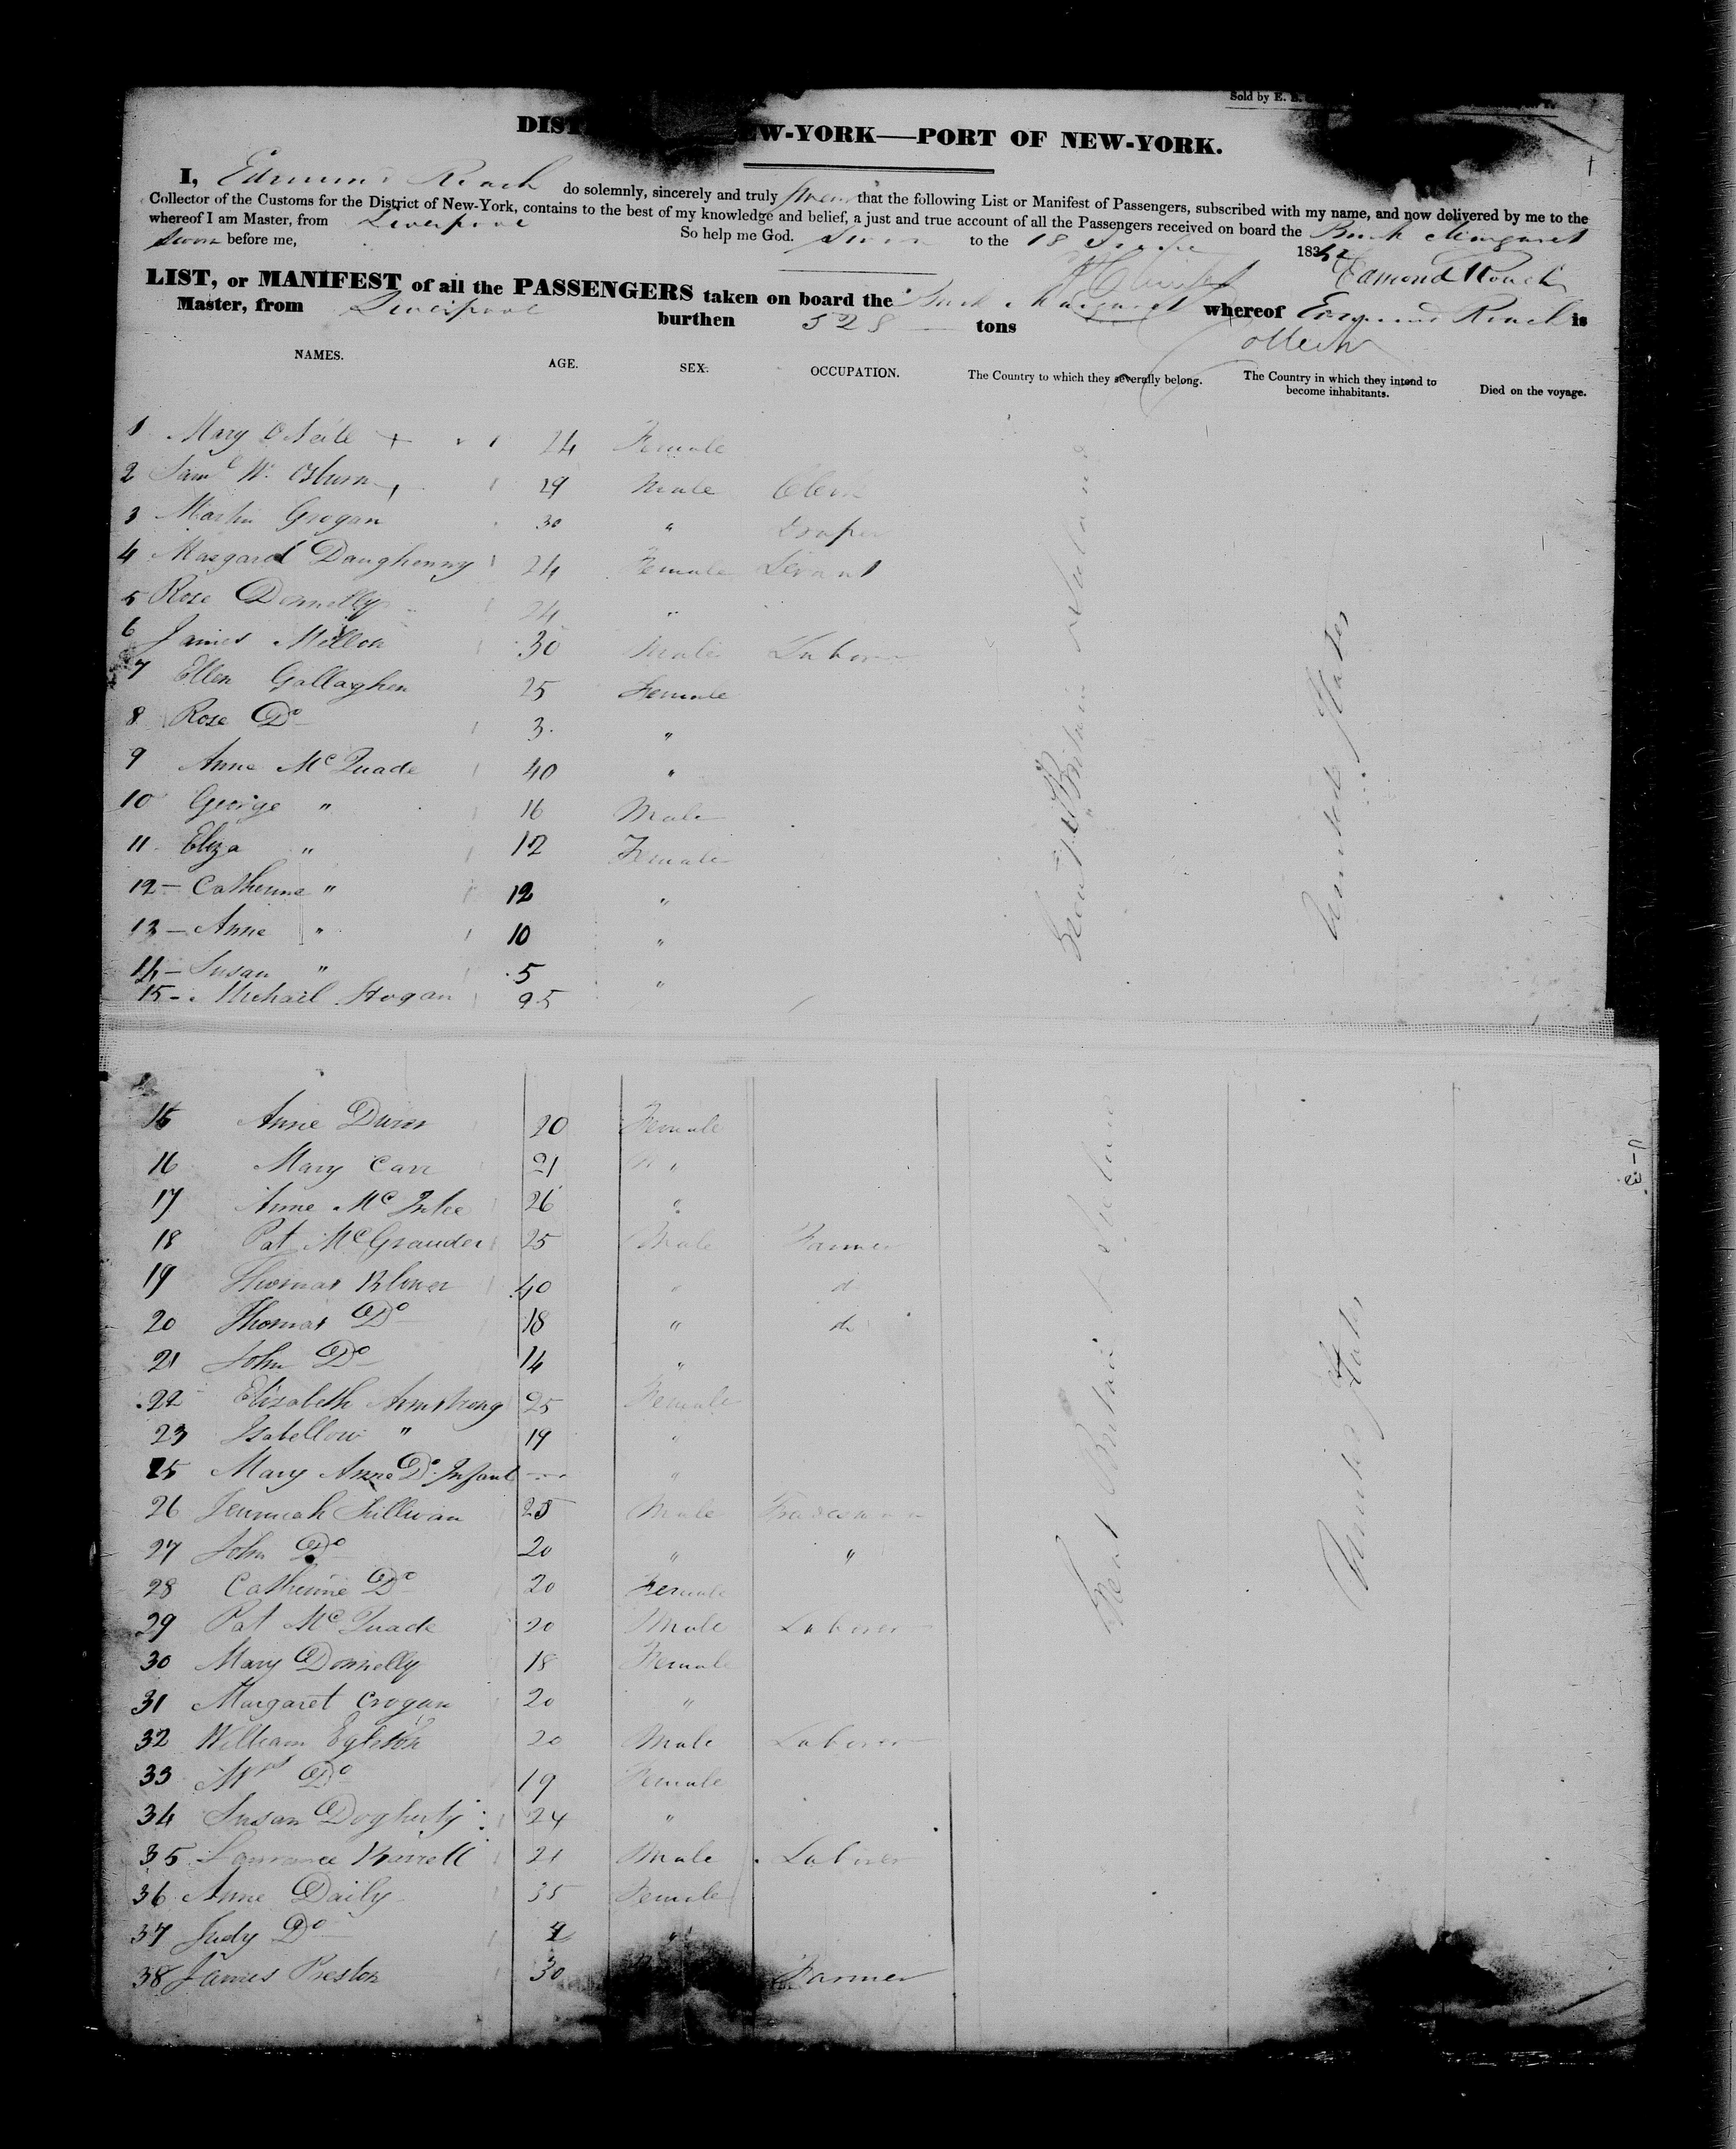 Sold by E.
DIST EW-YORK—PORT OF NEW-YORK.
I, Edmund Roach do solemnly, sincerely and truly swear that the following List or Manifest of Passengers, subscribed with my name, and now delivered by me to the
Collector of the Customs for the District of New-York, contains to the best of my knowledge and belief, a just and true account of all the Passengers received on board the Bark Margaret
whereof I am Master, from Liverpool So help me God.
Sworn before me, Sworn to the 18 183
Edmond Roach
LIST, or MANIFEST of all the PASSENGERS taken on board the Bark Margaret whereof Edmund Roach is
Master, from Liverpool burthen 528 tons
NAMES. AGE. SEX. OCCUPATION. The Country to which they severally belong. The Country in which they intend to become inhabitants. Died on the voyage.
1 Mary O Neile 24 Female
2 Saml W. Osburn 29 Male Clerk
3 Martin Grogan 30 " Draper
4 Margaret Daughenny 24 Female Servant
5 Rose Donnelly 24 "
6 James Mellon 30 Male Laborer
7 Ellen Gallagher 25 Female
8 Rose Do 3 "
9 Anne McQuade 40 "
10 George " 16 Male
11 Eliza " 12 Female
12 - Catherine " 12 "
13 - Anne " 10 "
14 - Susan " 5 "
15 - Michael Hogan 25
Great Britain & Ireland
United States
15 Anne Duron 20 Female
16 Mary Carr 21 "
17 Anne Mc 26 "
18 Pat McGrauder 25 Male Farmer
19 Thomas 40 " do
20 Thomas Do 18 " do
21 John Do 14 "
22 Elizabeth Armstrong 25 Female
23 Isabellow " 19 "
25 Mary Anne Do Infant "
26 Jeremiah Sullivan 25 Male Tradesman
27 John Do 20 " "
28 Catherine Do 20 Female
29 Pat McQuade 20 Male Laborer
30 Mary Donnelly 18 Female
31 Margaret Crogan 20 "
32 William Egleton 20 Male Laborer
33 Mrs Do 19 Female
34 Susan Dogherty 24 "
35 Lawrance Barrell 21 Male Laborer
36 Anne Daily 35 Female
37 Judy Do 4 "
38 James Preston 30 Farmer
Great Britain & Ireland
United States